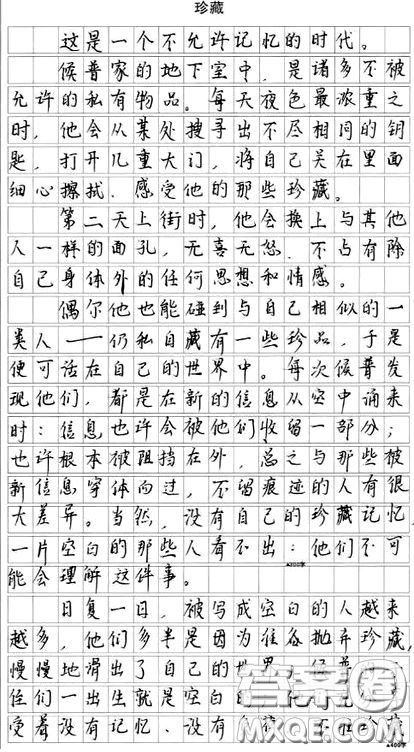 珍藏
这是一个不允许记忆的时代。
候普家的地下室中，是诸多不被
允许的私有物品。每天夜色最浓重之
时，他会从某处搜寻出不尽相同的钥
匙，打开几重大门，将自己关在里面
细心擦拭、感受他的那些珍藏。
第二天上街时，他会换上与其他
人一样的面孔，无喜无怒，不占有除
自己身体外的任何思想和情感。
偶尔他也能碰到与自己相似的一
类人——仍私自藏有一些珍品，于是
便可活在自己的世界中。每次候普发
现他们，都是在新的信息从空中涌来
时：信息也许会被他们收留一部分；
也许根本被阻挡在外，总之与那些被
新信息穿体而过，不留痕迹的人有很
大差异。当然，没有自己的珍藏记忆，
一片空白的那些人看不出：他们不可
▲200字
能会理解这件事。
日复一日，被写成空白的人越来
越多，他们多半是因为往备抛弃珍藏，
慢慢地滑出了自己的世界
们一出生就是空白的
受着没有记忆、没有
▲400字
答案圈
MXQE.COM